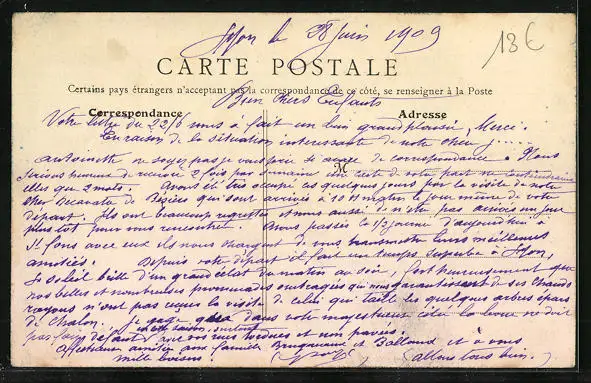 Lyon le 28 Juin 1909
13€
CARTE POSTALE
Certains pays étrangers n'acceptant pas la correspondance de ce côté, se renseigner à la Poste
Bien chers Enfants
Correspondance
Adresse
Votre lettre du 22/6 nous a fait un bien grand plaisir, Merci.
En raison de la situation intéressante de notre chère J.....
Antoinette ne soyez pas je vous prie si avare de correspondance. Nous
M
serions heureux de recevoir 2 fois par semaine un carte de votre part ne
elles que 2 mots. Avons été très occupé ces quelques jours par la visite de notre
cher de Béziers qui sont arrivés à 10 H matin le jour même de votre
départ. Ils ont beaucoup regretté et nous aussi de n'être pas arrivés un jour
plus tôt pour vous rencontrer. Avons passés la 1/2 journée d'aujourd'hui
avec eux ils nous chargent de vous transmettre leurs meilleures
amitiés. Depuis votre départ il fait un temps superbe à Lyon,
le soleil brille d'un grand éclat du matin au soir, fort heureusement que
nos belles et nombreuses promenades ombragés qui nous garantissent de ses chauds
rayons n'ont pas reçus la visite de celui qui taille les quelques arbres épars
de Chalon. Je gage que dans votre majestueuse cité la boue ne doit
pas faire défaut en cette saison, surtout avec vos rues tordues et non pavées.
Affectueuse amitiés aux famille et Balland et à vous
mille baisers. (allons tous bien.)